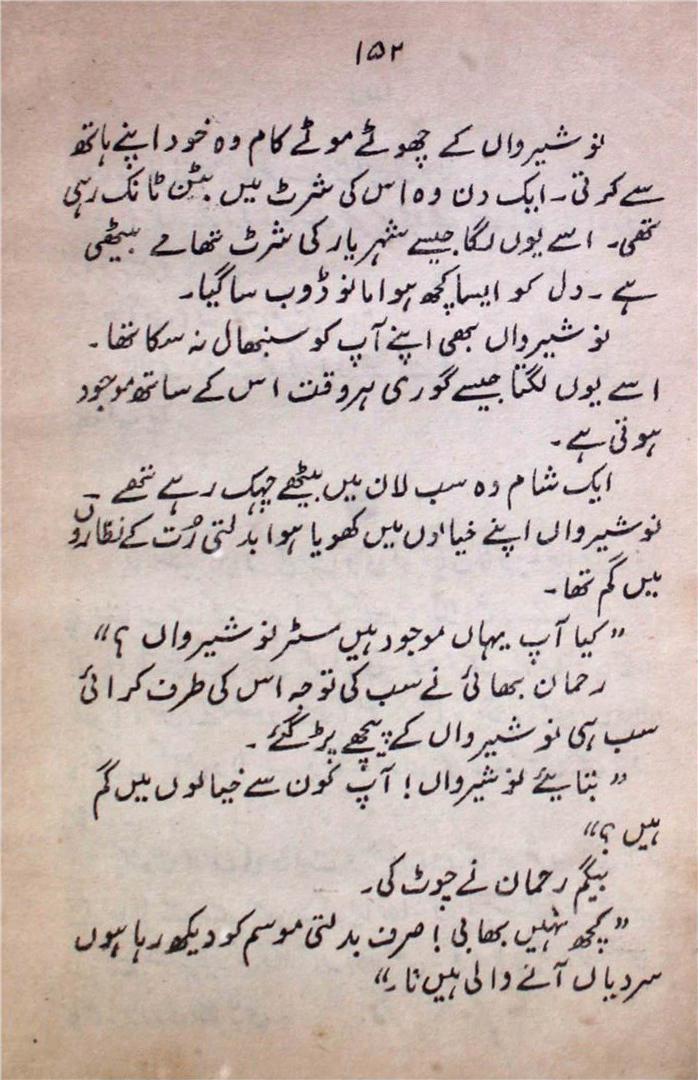 ۱۵۲
نوشیرواں کے چھوٹے موٹے کام وہ خود اپنے ہاتھ
سے کرتی۔ ایک دن وہ اس کی شرٹ میں بٹن ٹانک رہی
تھی۔ اسے یوں لگا جیسے شہریار کی شرٹ تھامے بیٹھی
ہے۔ دل کو ایسا کچھ ہوا مانو ڈوب سا گیا۔
نوشیرواں بھی اپنے آپ کو سنبھال نہ سکا تھا۔
اسے یوں لگتا جیسے گوری ہر وقت اس کے ساتھ موجود
ہوتی ہے۔
ایک شام وہ سب لان میں بیٹھے چہک رہے تھے۔
نوشیرواں اپنے خیالوں میں کھویا ہوا بدلتی رُت کے نظاروں
میں گم تھا۔
”کیا آپ یہاں موجود ہیں مسٹر نوشیرواں ؟“
رحمان بھائی نے سب کی توجہ اس کی طرف کرائی
سب ہی نوشیرواں کے پیچھے پڑ گئے۔
”بتایئے نوشیرواں! آپ کون سے خیالوں میں گم
ہیں ؟“
بیگم رحمان نے چوٹ کی۔
”کچھ نہیں بھابی! صرف بدلتی موسم کو دیکھ رہا ہوں
سردیاں آنے والی ہیں نا۔“